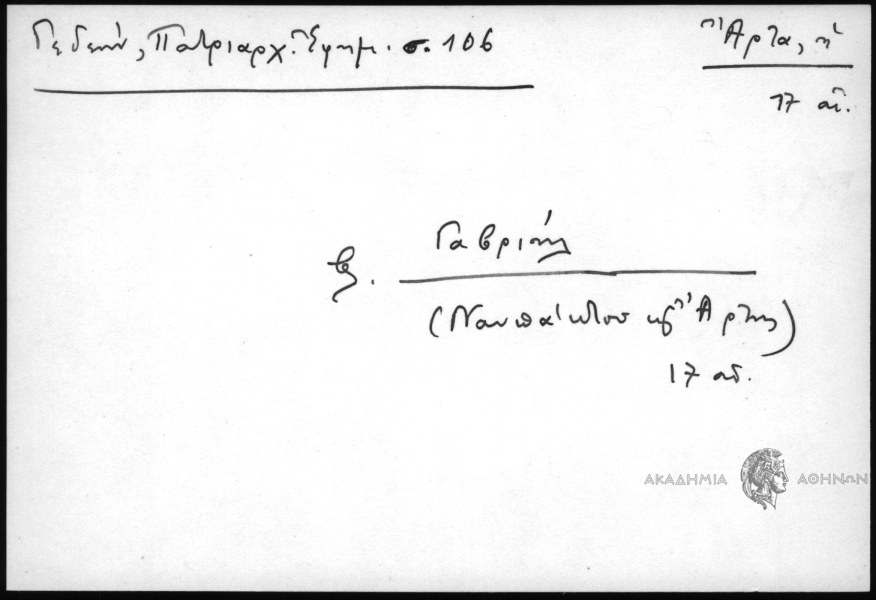 Γεδεών, Πατριαρχ. Ἐφημ. σ. 106
Ἄρτα, ἡ
17 αἰ.
Γαβριήλ
(Ναυπάκτου κ Ἄρτης)
17 αἰ.
ΑΚΑΔΗΜΙΑ ΑΘΗΝΩΝ